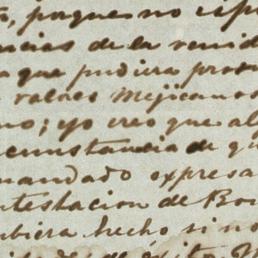 , porque no espe
ncias de la venid
a que pudiera prost
valaes Mejicanos
no; yo creo que al
cunstancia de qu
mandado expresa
ntestacion de Bou
ubiera hecho si no